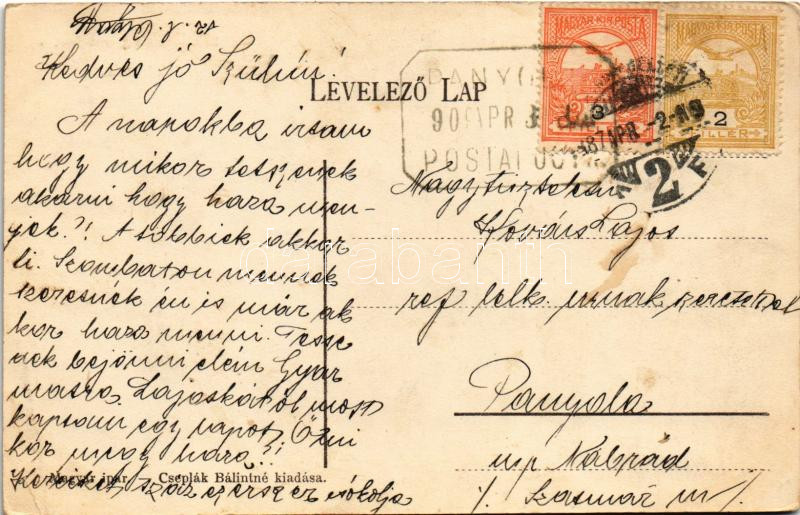 Kedves jó Szüleim!
A napokba irtam
hogy mikor tetszenek
akarni hogy haza men-
jek?! A többiek akkor
li. Szombaton mennek
szeretnék én is már ak
kor haza menni. Tesse
nek bejönni elém Gyar
matra. Lajoskától most
kaptam egy lapot, Ő mi
kor megy haza?!
Kezeiket százszor ezerszer csókolja
LEVELEZŐ LAP
MAGYAR KIR. POSTA
3
MAGYAR KIR. POSTA
2
FILLÉR
PANYOLA
909 APR
POSTAI ÜGYN
907 APR. -2
2
Nagytiszteletű
Kovács Lajos
ref lelk. urnak, szeretettel
Panyola
u.p. Nábrád
Szatmár m.
Magyar ipar. Cséplák Bálintné kiadása.
darabanth